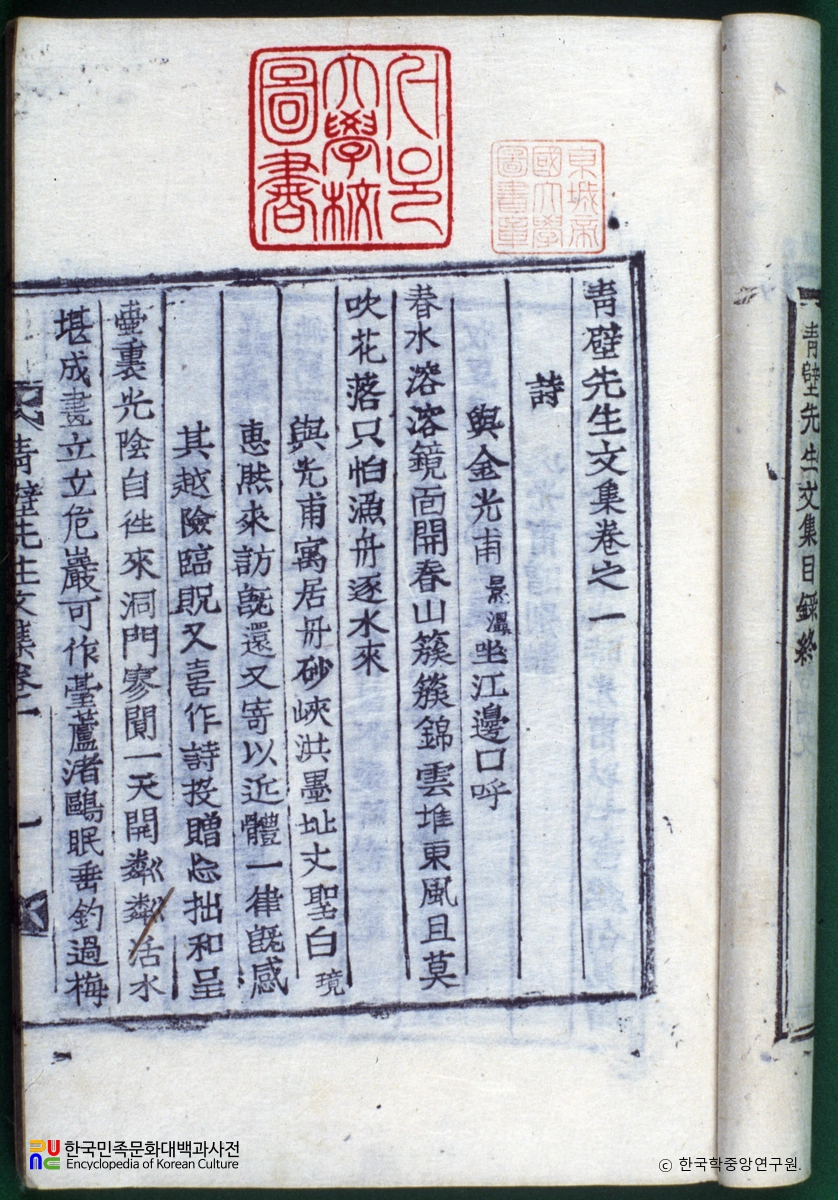 靑壁先生文集目錄終
서울大學校圖書
京城帝國大學圖書章
靑壁先生文集卷之一
詩
與金光甫景溫坐江邊口呼
春水溶溶鏡面開春山簇簇錦雲堆東風且莫
吹花落只怕漁舟逐水來
與光甫寓居丹砂峽洪墨址丈聖白境
惠然來訪旣還又寄以近體一律旣感
其越險臨貺又喜作詩投贈忘拙和呈
壺裏光陰自徃來洞門寥閴一天開粼粼活水
堪成畫立立危巖可作臺蘆渚鷗眠垂釣過梅
靑壁先生文集卷一
一
한국민족문화대백과사전
Encyclopedia of Korean Culture
© 한국학중앙연구원.